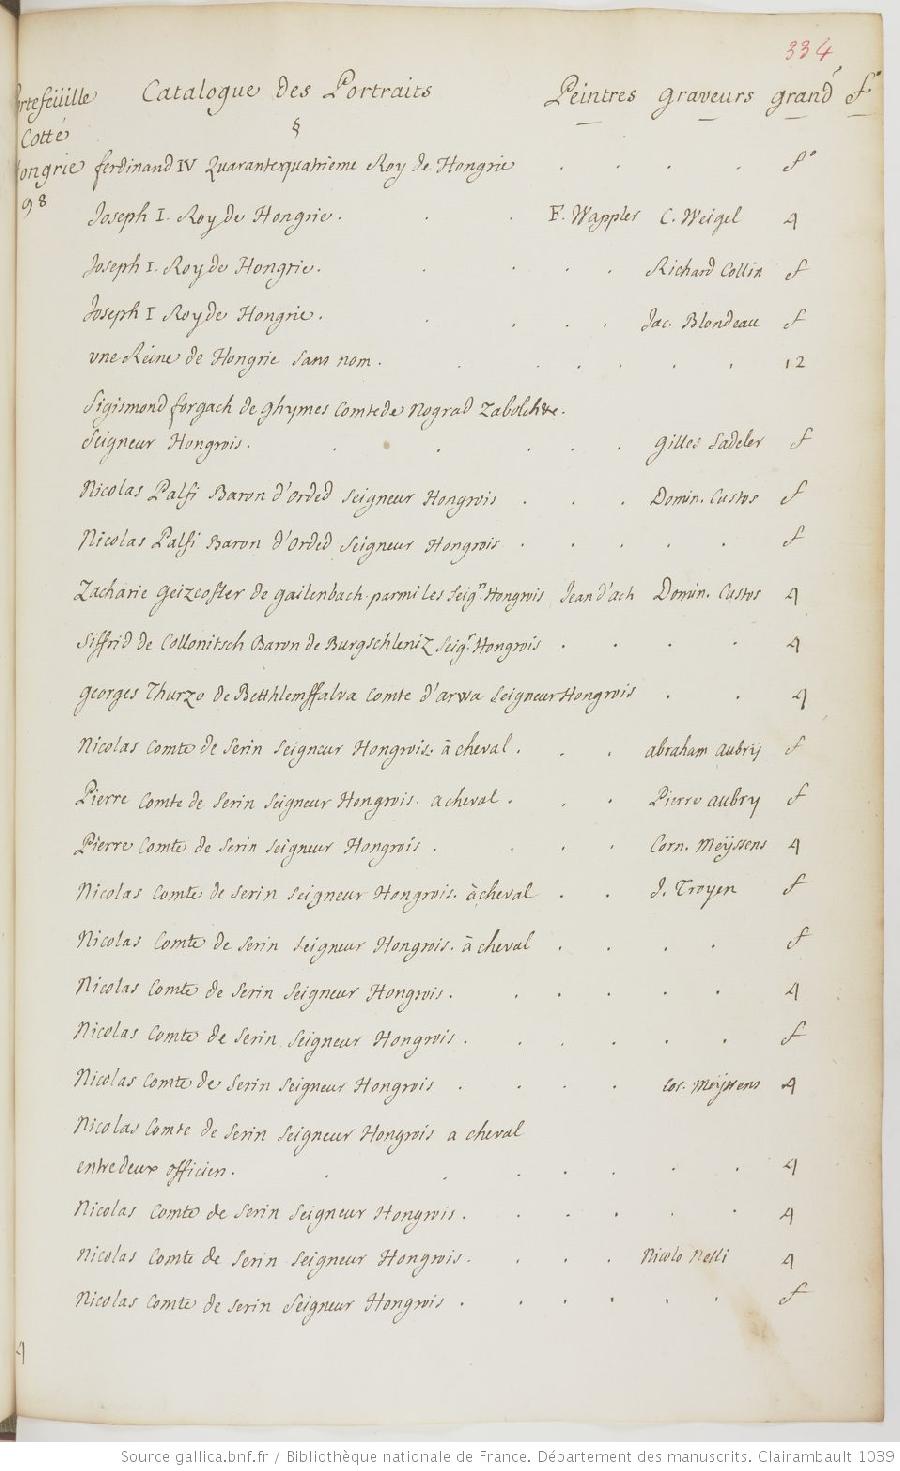 334
Catalogue des Portraits Peintres graveurs grandr fo
Cotté
§
98
ferdinand IV Quarantequatrieme Roy de Hongrie . . . . fo
Joseph I. Roy de Hongrie . . . F. Wappler C. Weigel 4
Joseph I. Roy de Hongrie . . . . . Richard Collin f
Joseph I Roy de Hongrie . . . . . Jac. Blondeau f
une Reine de Hongrie sans nom . . . . . . 12
Sigismond forgach de ghymes Comte de Nograd Zabolch &c.
Seigneur Hongrois . . . . . Gilles Sadeler f
Nicolas Palfi Baron d'Orded Seigneur Hongrois . . . Domin. Custos f
Nicolas Palfi Baron d'Orded Seigneur Hongrois . . . . . f
Zacharie Geizcofler de gailenbach parmi les Seigrs Hongrois Jean d'ach Domin. Custos 4
Siffrid de Collonitsch Baron de Burgschleniz Seigr Hongrois . . . . 4
Georges Thurzo de Betthlemffalva Comte d'arwa Seigneur Hongrois . . 4
Nicolas Comte de Serin Seigneur Hongrois. à cheval . . . abraham aubrij f
Pierre Comte de Serin Seigneur Hongrois. a cheval . . . Pierre aubry f
Pierre Comte de Serin Seigneur Hongrois . . . Corn. Meÿssens 4
Nicolas Comte de Serin Seigneur Hongrois. à cheval . . J. Troyen f
Nicolas Comte de Serin Seigneur Hongrois. à cheval . . . . f
Nicolas Comte de Serin Seigneur Hongrois . . . . . . 4
Nicolas Comte de Serin Seigneur Hongrois . . . . . . f
Nicolas Comte de Serin Seigneur Hongrois . . . . Cor. Meÿssens 4
Nicolas Comte de Serin Seigneur Hongrois a cheval
entre deux officiers . . . . . . . . 4
Nicolas Comte de Serin Seigneur Hongrois . . . . . . 4
Nicolas Comte de Serin Seigneur Hongrois . . . . Nicolo Nelli 4
Nicolas Comte de Serin Seigneur Hongrois . . . . . . f
Source gallica.bnf.fr / Bibliothèque nationale de France. Département des manuscrits. Clairambault 1039